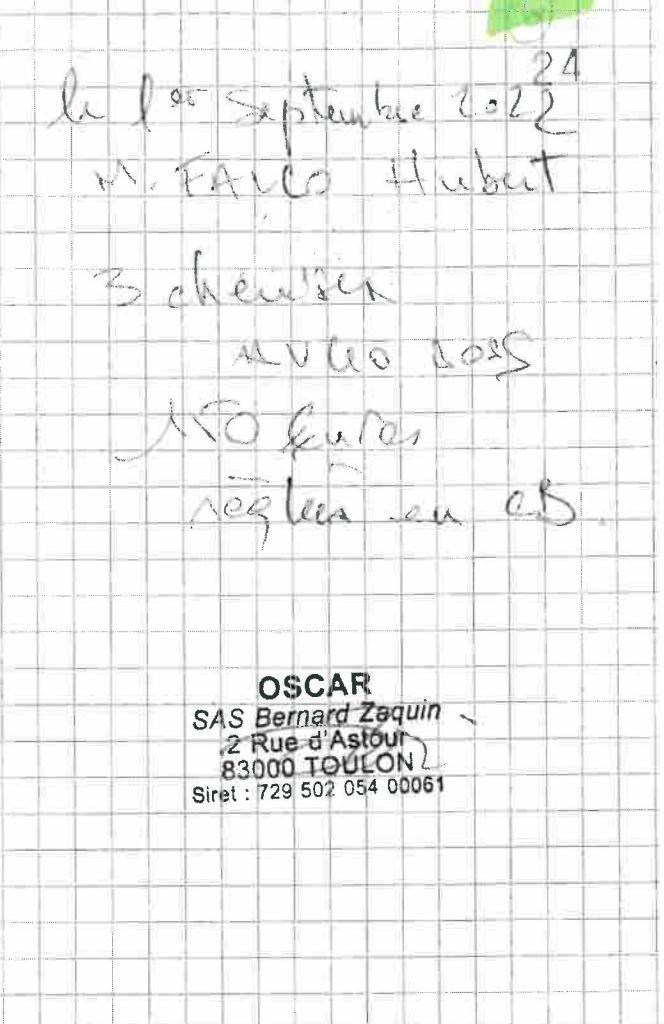 24
le 1er Septembre 2022
M. FALCO Hubert
3 chemises
HUGO BOSS
150 Euros
réglées en CB.
OSCAR
SAS Bernard Zaquin
2 Rue d'Astour
83000 TOULON
Siret : 729 502 054 00061